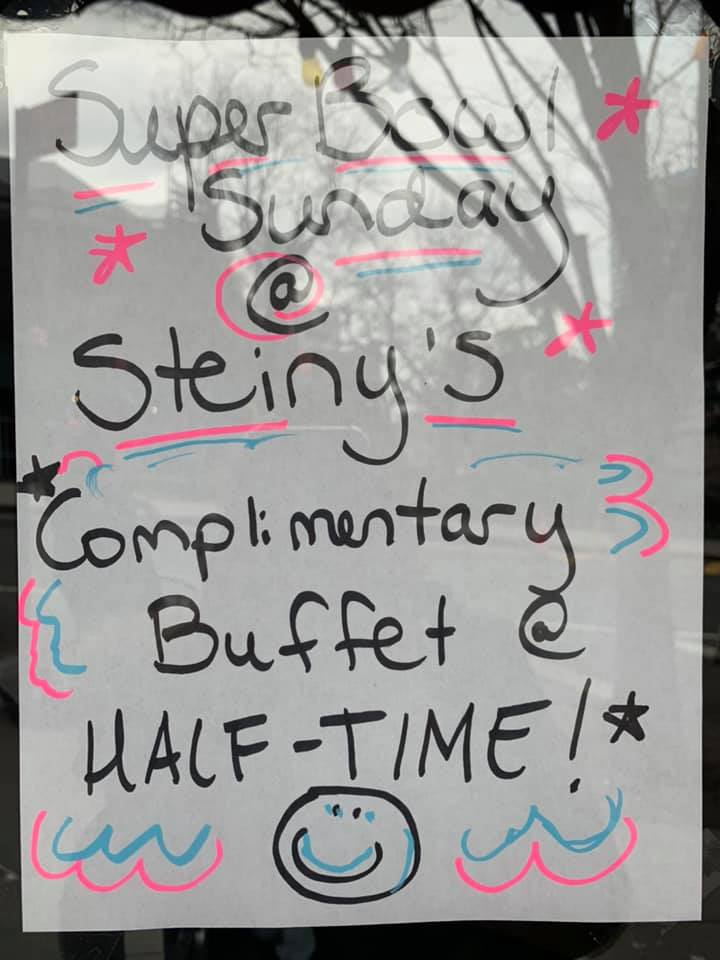 Super Bowl
Sunday
@
Steiny's
Complimentary
Buffet @
HALF-TIME!